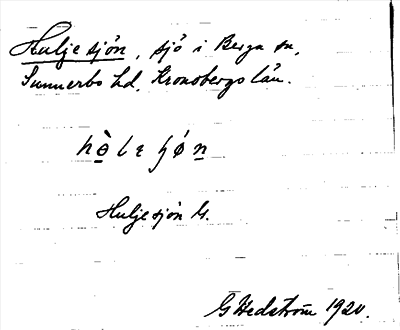 Huljesjön, sjö i Berga sn,
Sunnerbo hd, Kronobergs län.
Huljesjön G.
G Hedström 1920.